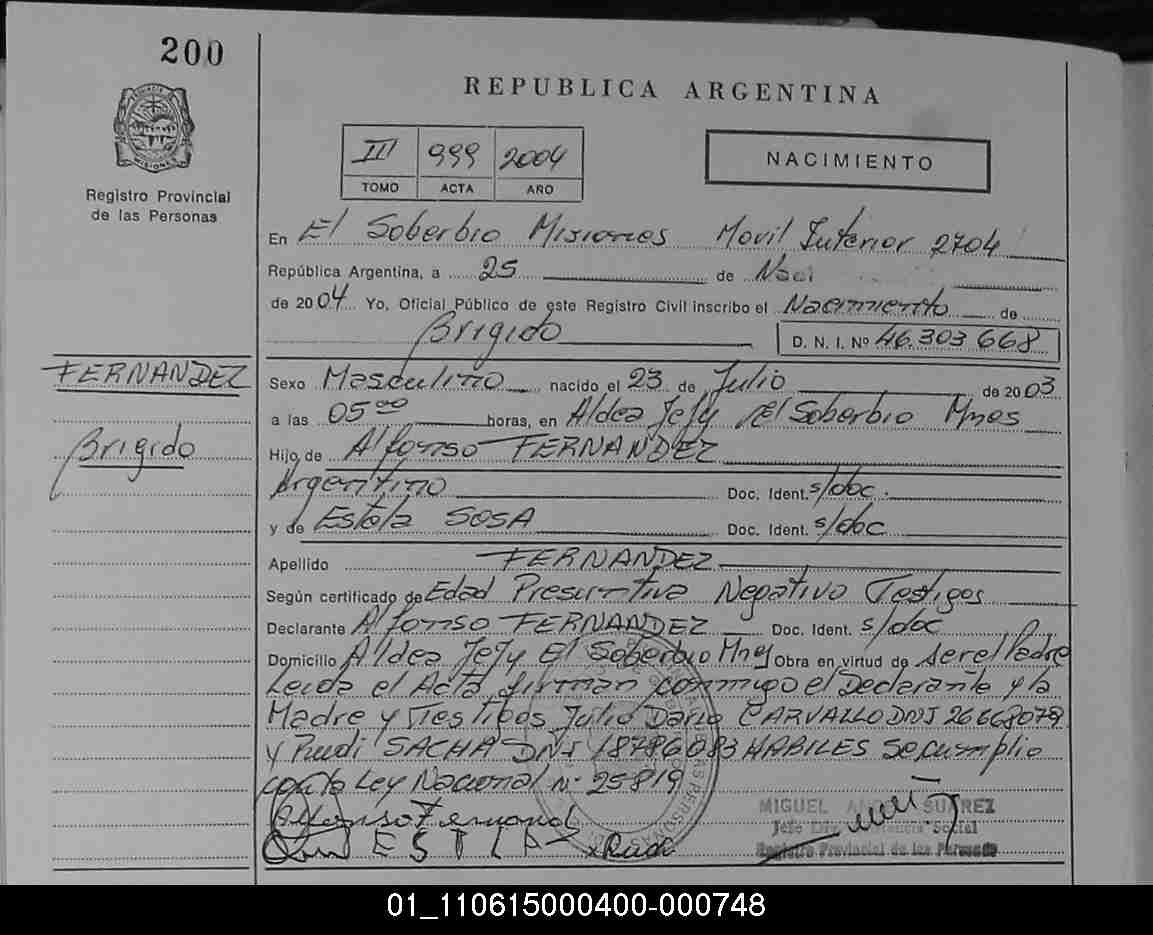 200
REPUBLICA ARGENTINA
III 999 2004
TOMO ACTA AÑO
NACIMIENTO
PROVINCIA DE MISIONES
Registro Provincial
de las Personas
En El Soberbio Misiones Movil Interior 2704
República Argentina, a 25 de
de 2004 Yo, Oficial Público de este Registro Civil inscribo el Nacimiento de
Brigido D. N. I. Nº 46.303.668
FERNANDEZ
Sexo Masculino nacido el 23 de Julio de 2003
a las 05 00 horas, en Aldea Jejy El Soberbio Mnes
Brigido
Hijo de Alfonso FERNANDEZ
Argentino Doc. Ident. s/doc.
y de Estela SOSA Doc. Ident. s/doc
Apellido FERNANDEZ
Según certificado de Edad Presuntiva Negativo Testigos
Declarante Alfonso FERNANDEZ Doc. Ident. s/doc
Domicilio Aldea Jejy El Soberbio Mnes Obra en virtud de ser el Padre
Leida el Acta, firman conmigo el Declarante y la
Madre y Testigos Julio Dario CARVALLO DNI 26668079
y Rudi SACHA DNI 18786083 HABILES se cumplio
con la Ley Nacional nº 25819
Alfonso Fernand
ESTLA Rudi
MIGUEL ANGEL SUAREZ
Jefe Social
Registro Provincial de las Personas
01_110615000400-000748